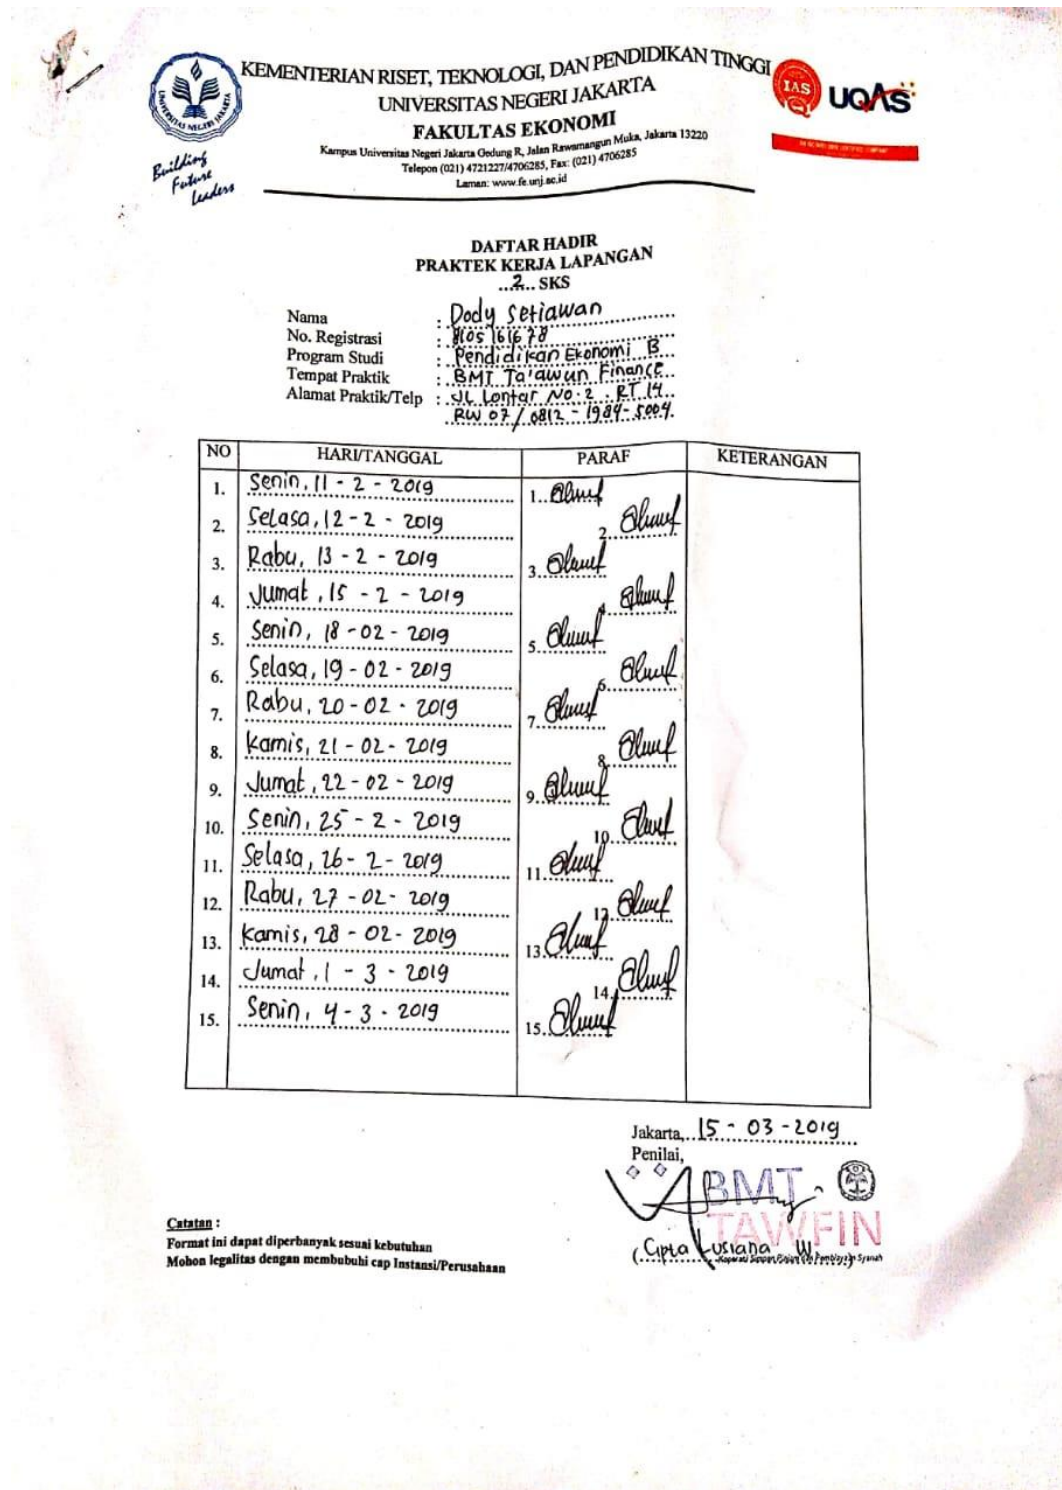 KEMENTERIAN RISET, TEKNOLOGI, DAN PENDIDIKAN TINGGI
UNIVERSITAS NEGERI JAKARTA
FAKULTAS EKONOMI
Kampus Universitas Negeri Jakarta Gedung R, Jalan Rawamangun Muka, Jakarta 13220
Telepon (021) 4721227/4706285, Fax: (021) 4706285
Laman: www.fe.unj.ac.id
UNIVERSITAS NEGERI JAKARTA
Building
Future
Leaders
IAS
UQAS
DAFTAR HADIR
PRAKTEK KERJA LAPANGAN
...2.. SKS
Nama : Dody Setiawan
No. Registrasi : 8105161678
Program Studi : Pendidikan Ekonomi B
Tempat Praktik : BMT Ta'awun Finance
Alamat Praktik/Telp : JL Lontar No. 2 . RT 14
RW 07 / 0812 - 1984 - 5004.
NO HARI/TANGGAL PARAF KETERANGAN
1. Senin, 11 - 2 - 2019 1.
2. Selasa, 12 - 2 - 2019 2.
3. Rabu, 13 - 2 - 2019 3.
4. Jumat, 15 - 2 - 2019 4.
5. Senin, 18 - 02 - 2019 5.
6. Selasa, 19 - 02 - 2019 6.
7. Rabu, 20 - 02 - 2019 7.
8. Kamis, 21 - 02 - 2019 8.
9. Jumat, 22 - 02 - 2019 9.
10. Senin, 25 - 2 - 2019 10.
11. Selasa, 26 - 2 - 2019 11.
12. Rabu, 27 - 02 - 2019 12.
13. Kamis, 28 - 02 - 2019 13.
14. Jumat, 1 - 3 - 2019 14.
15. Senin, 4 - 3 - 2019 15.
Jakarta, 15 - 03 - 2019
Penilai,
BMT
TAWFIN
(Cipta Lusiana W.)
Koperasi Simpan Pinjam dan Pembiayaan Syariah
Catatan :
Format ini dapat diperbanyak sesuai kebutuhan
Mohon legalitas dengan membubuhi cap Instansi/Perusahaan